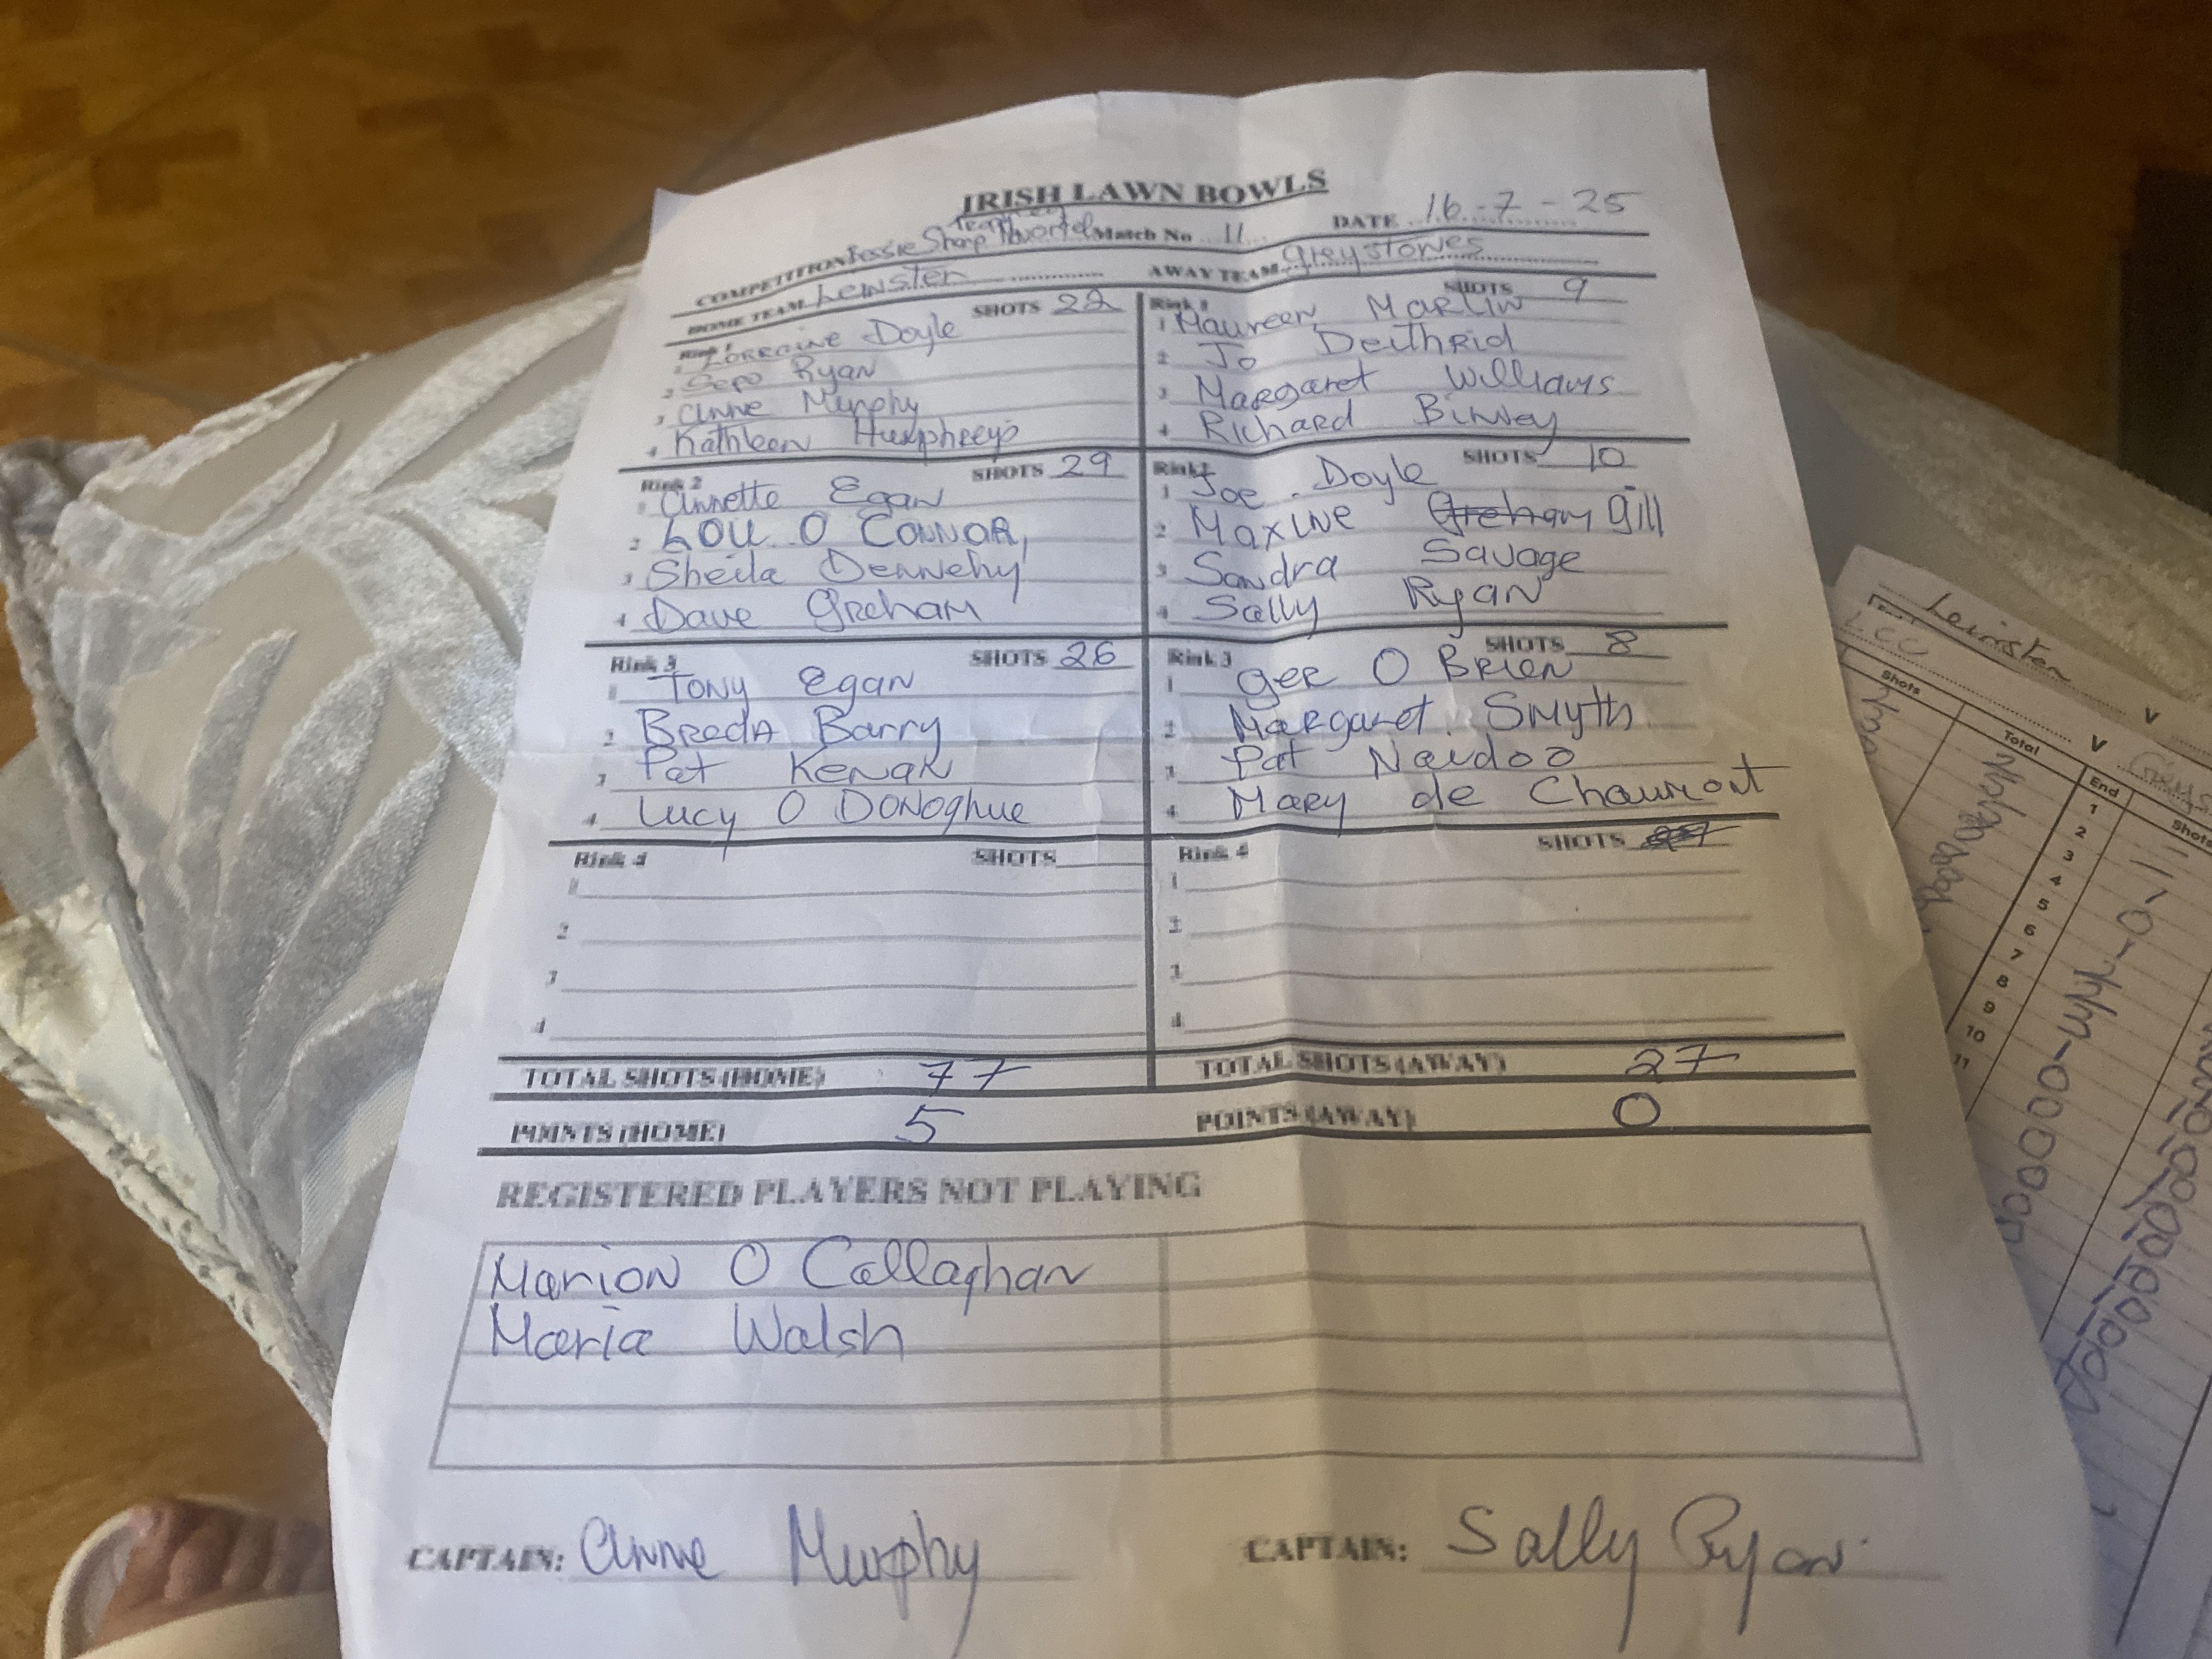 IRISH LAWN BOWLS
COMPETITION Bessie Sharp Match No 11 DATE 16-7-25
HOME TEAM Leinster AWAY TEAM Greystones
Rink 1 SHOTS 22
1 Lorraine Doyle
2 Ryan
3 Anne Murphy
4 Kathleen Humphreys
Rink 1 SHOTS 9
1 Maureen Martin
2 Jo Deithrid
3 Margaret Williams
4 Richard Binley
Rink 2 SHOTS 29
1 Annette Egan
2 LOU O CONNOR
3 Sheila Dennehy
4 Dave Greham
Rink 2 SHOTS 10
1 Joe Doyle
2 Maxine Greham Gill
3 Sandra Savage
4 Sally Ryan
Rink 3 SHOTS 26
1 Tony Egan
2 Breda Barry
3 Pat Kenan
4 Lucy O Donoghue
Rink 3 SHOTS 8
1 Ger O Brien
2 Margaret Smyth
3 Pat Naidoo
4 Mary de Chaumont
Rink 4 SHOTS
1
2
3
4
Rink 4 SHOTS
1
2
3
4
TOTAL SHOTS (HOME) 77 TOTAL SHOTS (AWAY) 27
POINTS (HOME) 5 POINTS (AWAY) 0
REGISTERED PLAYERS NOT PLAYING
Marion O Callaghan
Maria Walsh
CAPTAIN: Anne Murphy CAPTAIN: Sally Ryan
Leinster V
LCC V
Shots Total End Shots
1
2
3
4
5
6
7
8
9
10
11